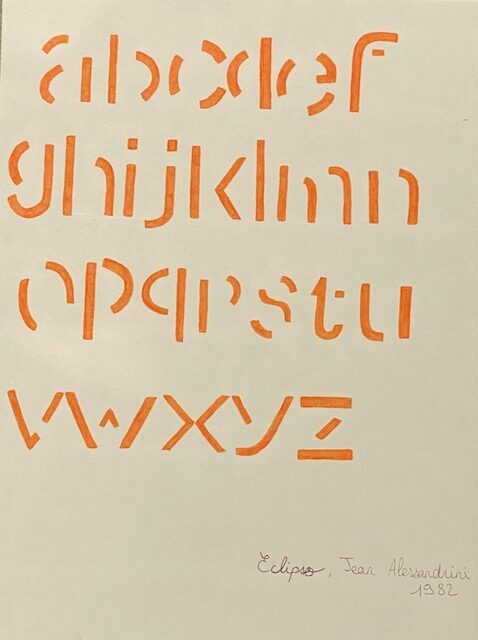 abcdef
ghijklmn
opqrstu
vwxyz
Eclipso, Jean Alessandrini
1982